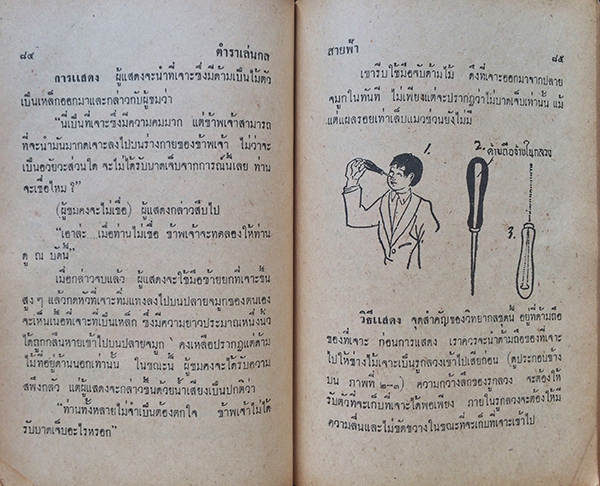 ๘๔
ตำราเล่นกล
การแสดง ผู้แสดงจะนำที่เจาะซึ่งมีด้ามเป็นไม้ตัว
เป็นเหล็กออกมาและกล่าวกับผู้ชมว่า
“นี่เป็นที่เจาะซึ่งมีความคมมาก แต่ข้าพเจ้าสามารถ
ที่จะนำมันมากดเจาะลงไปบนร่างกายของข้าพเจ้า ไม่ว่าจะ
เป็นอวัยวะส่วนใด จะไม่ได้รับบาดเจ็บจากการณ์นี้เลย ท่าน
จะเชื่อไหม ?”
(ผู้ชมคงจะไม่เชื่อ) ผู้แสดงกล่าวสืบไป
“เอาล่ะ....เมื่อท่านไม่เชื่อ ข้าพเจ้าจะทดลองให้ท่าน
ดู ณ บัดนี้”
เมื่อกล่าวจบแล้ว ผู้แสดงจะใช้มือซ้ายยกที่เจาะขึ้น
สูง ๆ แล้วกดหัวที่เจาะทิ่มแทงลงไปบนปลายจมูกของตนเอง
จะเห็นเนื้อที่เจาะที่เป็นเหล็ก ซึ่งมีความยาวประมาณหนึ่งนิ้ว
ได้ถูกกลืนหายเข้าไปบนปลายจมูก คงเหลือปรากฏแต่ด้าม
ไม้ที่อยู่ด้านนอกเท่านั้น ในขณะนี้ ผู้ชมคงจะได้รับความ
สพึงกลัว แต่ผู้แสดงจะกล่าวขึ้นด้วยน้ำเสียงเป็นปกติว่า
“ท่านทั้งหลายไม่จำเป็นต้องตกใจ ข้าพเจ้าไม่ได้
รับบาดเจ็บอะไรหรอก”
สายฟ้า
๘๕
เขารีบใช้มือจับด้ามไม้ ดึงที่เจาะออกมาจากปลาย
จมูกในทันที ไม่เพียงแต่จะปรากฏว่าไม่บาดเจ็บเท่านั้น แม้
แต่แผลรอยเท่าเล็บแมวข่วนยังไม่มี
1.
2. ด้ามถือข้างในกลวง
3.
วิธีแสดง จุดสำคัญของวิทยากลชุดนี้ อยู่ที่ด้ามถือ
ของที่เจาะ ก่อนการแสดง เราควรจะนำด้ามถือของที่เจาะ
ไปให้ช่างไม้เจาะเป็นรูกลวงเข้าไปเสียก่อน (ดูประกอบข้าง
บน ภาพที่ ๒-๓) ความกว้างลึกของรูกลวง จะต้องให้
รับตัวที่จะเก็บที่เจาะได้พอเพียง ภายในรูกลวงจะต้องให้มี
ความลื่นและไม่ขัดขวางในขณะที่จะเก็บที่เจาะเข้าไป